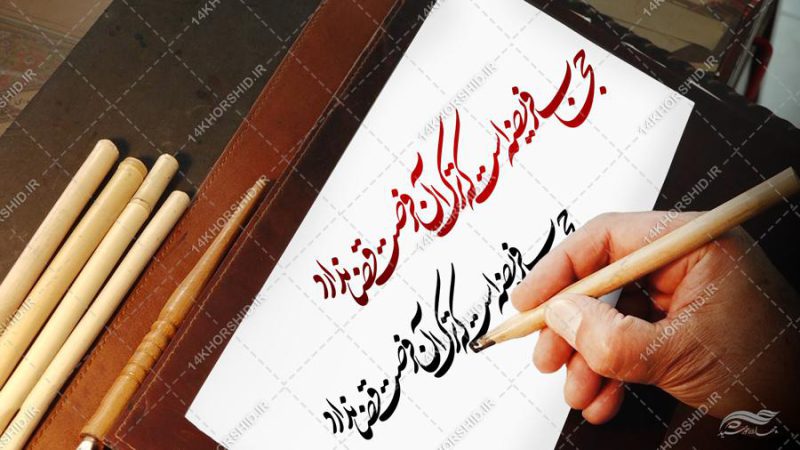 حجاب فریضه است که ترک آن فرصت قضا ندارد
حجاب فریضه است که ترک آن فرصت قضا ندارد
14KHORSHID.IR